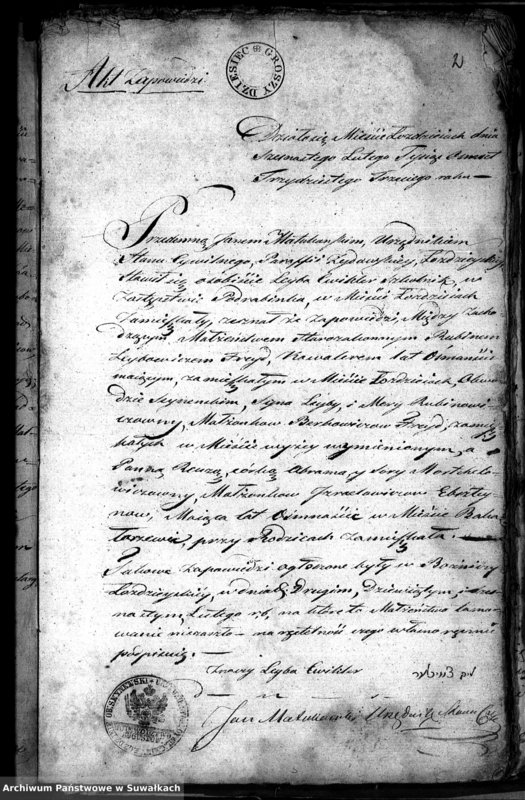 DZIESIEC GROSZY
2
Akt Zapowiedzi
Działo się w Mieście Łozdzieiach dnia
Szesnastego Lutego Tysiąc Osmset
Trzydziestego Trzeciego roku —
Przedemną Janem Matulewskim, Urzędnikiem
Stanu Cywilnego, Paraffii Żydowskiey, Łozdzieyskiey
Stawił się osobiście Leyba Cwikler Szkolnik, w
zastępstwie Podrabinka, w Mieście Łozdzieiach
Zamieszkały, zeznał że zapowiedzi, Między zacho
dzącym, Małżeństwem Starozakonnym Rubinem
Leybowiczem Freyd, Kawalerem lat Osmnaście
maiącym, zamieszkałym w Mieście Łozdzieiach, Obwo
dzie Seynenskim, Syna Leyby, i Mery Rubinowi
czowny, Małżonków Berkowiczow Freyd, zamie
szkałych w Mieście wyżey wymienionym, a
Panną Rewzą, córką Abrama, y Sory Mortchelo
wiczowny, Małżonkow Izraelowiczow Ebsztey
now, Maiąca lat Osmnaście w Mieście Baka
łarzewie, przy Rodzicach zamieszkała. —
Takowe zapowiedzi ogłoszone były w Boznicy
Łozdzieyskiey, w dniach Drugim, Dziewiątym, i szes
nastym Lutego r.b., na które to Małżeństwo tamo
wanie niezaszło — na rzetelność czego własno ręcznie
podpisuię. —
Leyba Cwikler
Jan Matulewski Urzędnik Stanu Cyw:
Archiwum Państwowe w Suwałkach